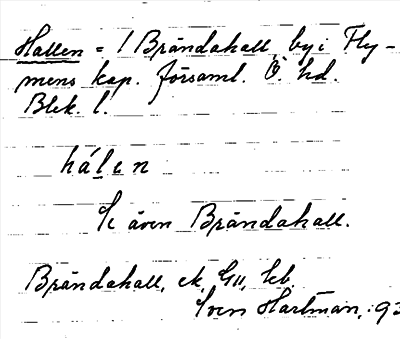 Hallen = 1 Brändahall, by i Fly-
mens kap. församl. Ö. hd.
Blek. l.
hálen
Se även Brändahall.
Brändahall, ek. G11, kb.
Sven Hartman, 93